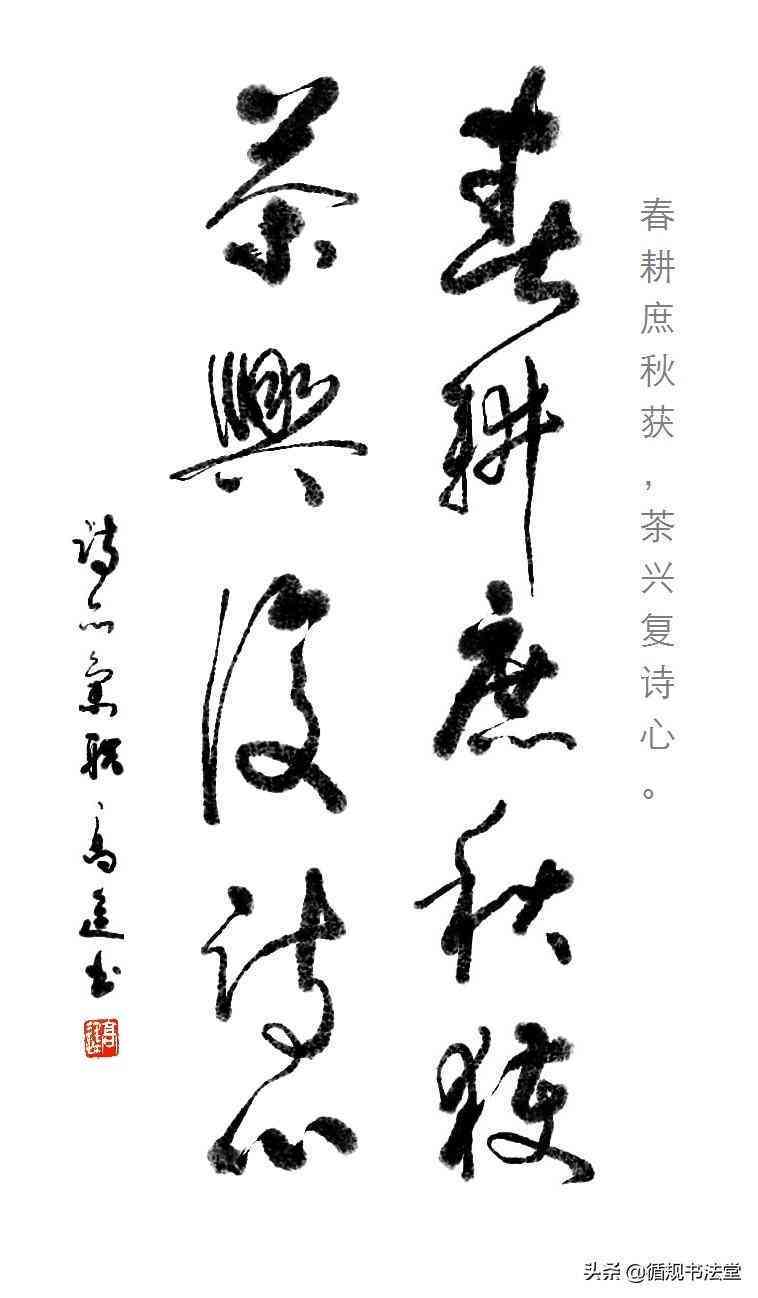 春耕庶秋获，茶兴复诗心。
春耕庶秋穫
茶興復诗心
诗心象联高逵书
头条 @循规书法堂